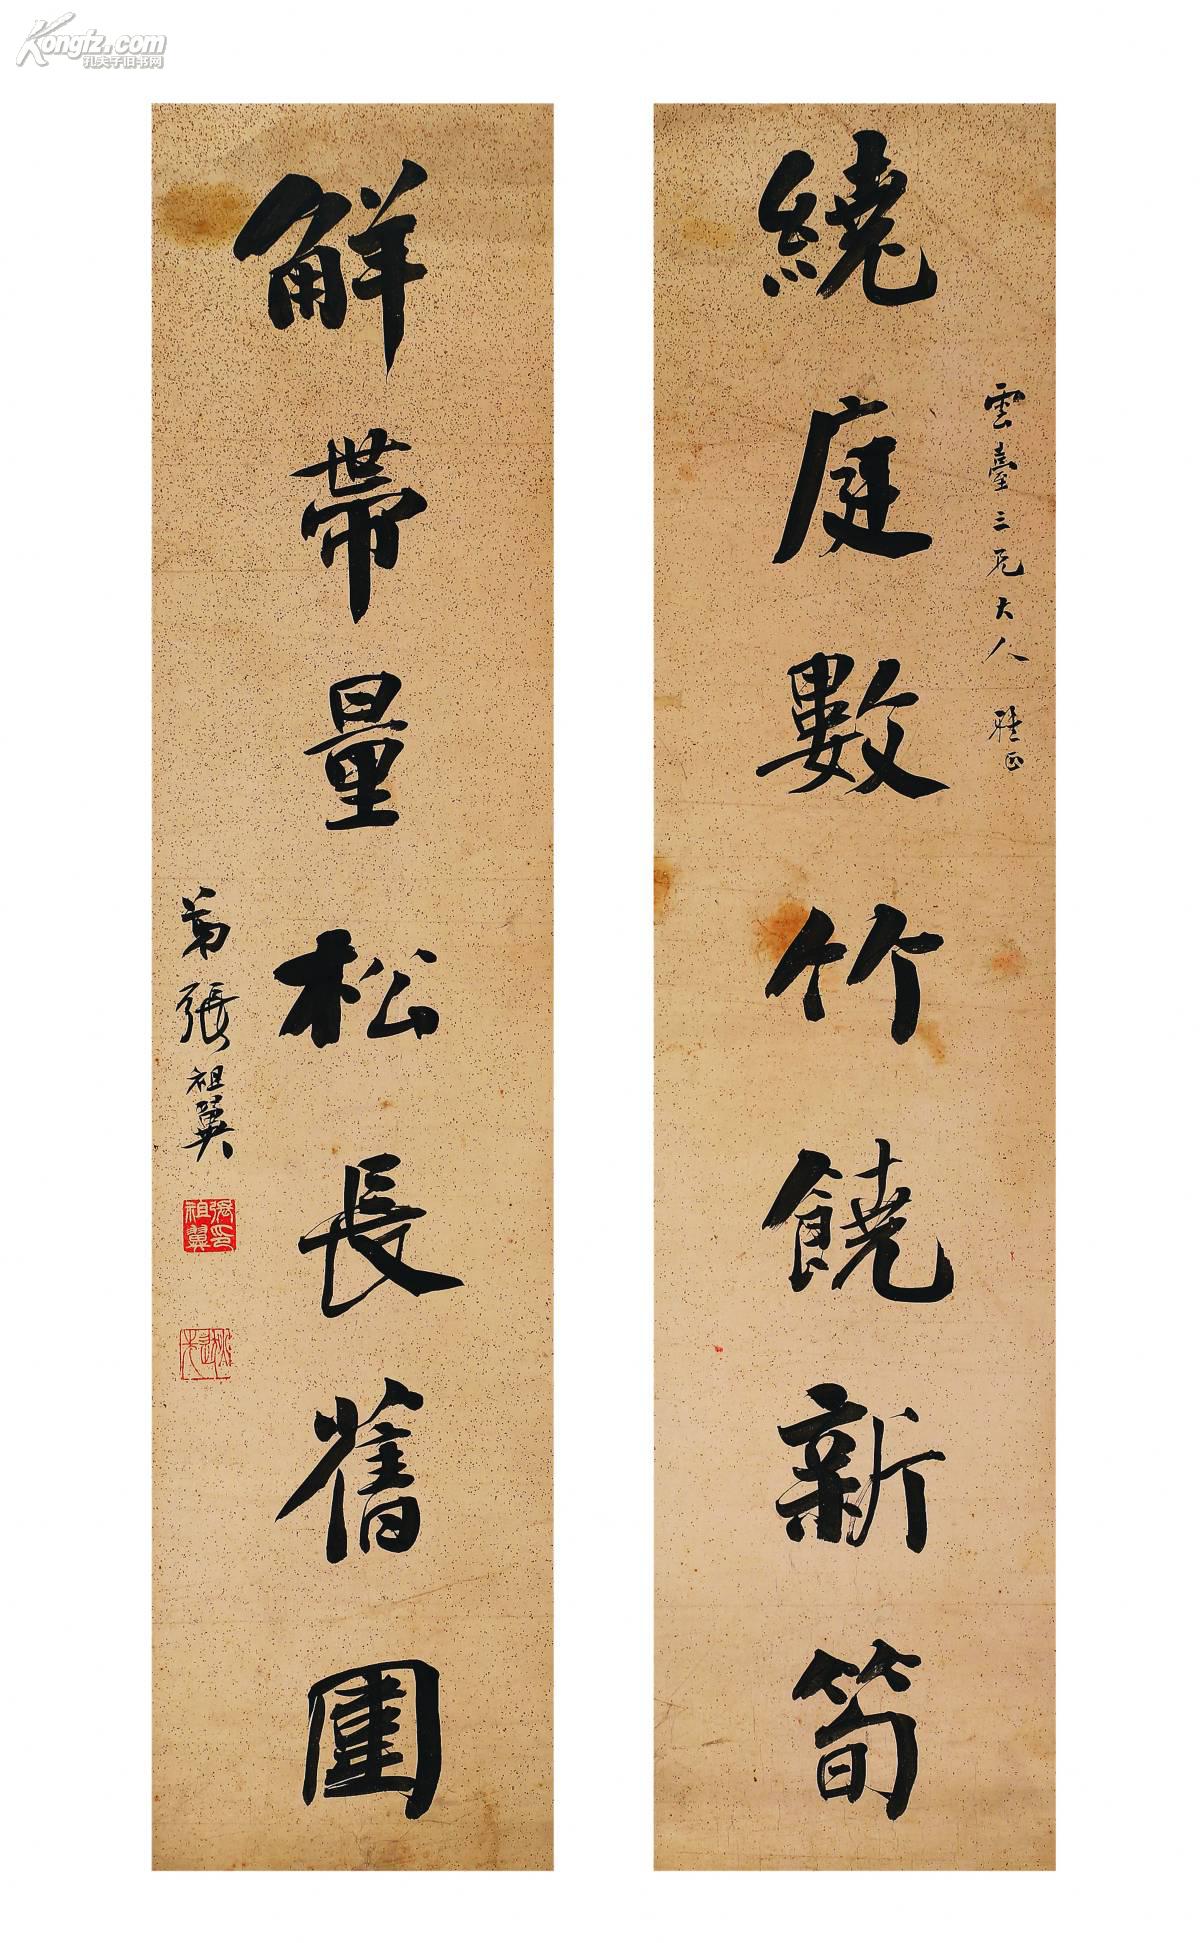 Kongfz.com
孔夫子旧书网
繞庭數竹饒新筍
雲臺三兄大人雅正
解帶量松長舊圍
弟張祖翼
張印祖翼